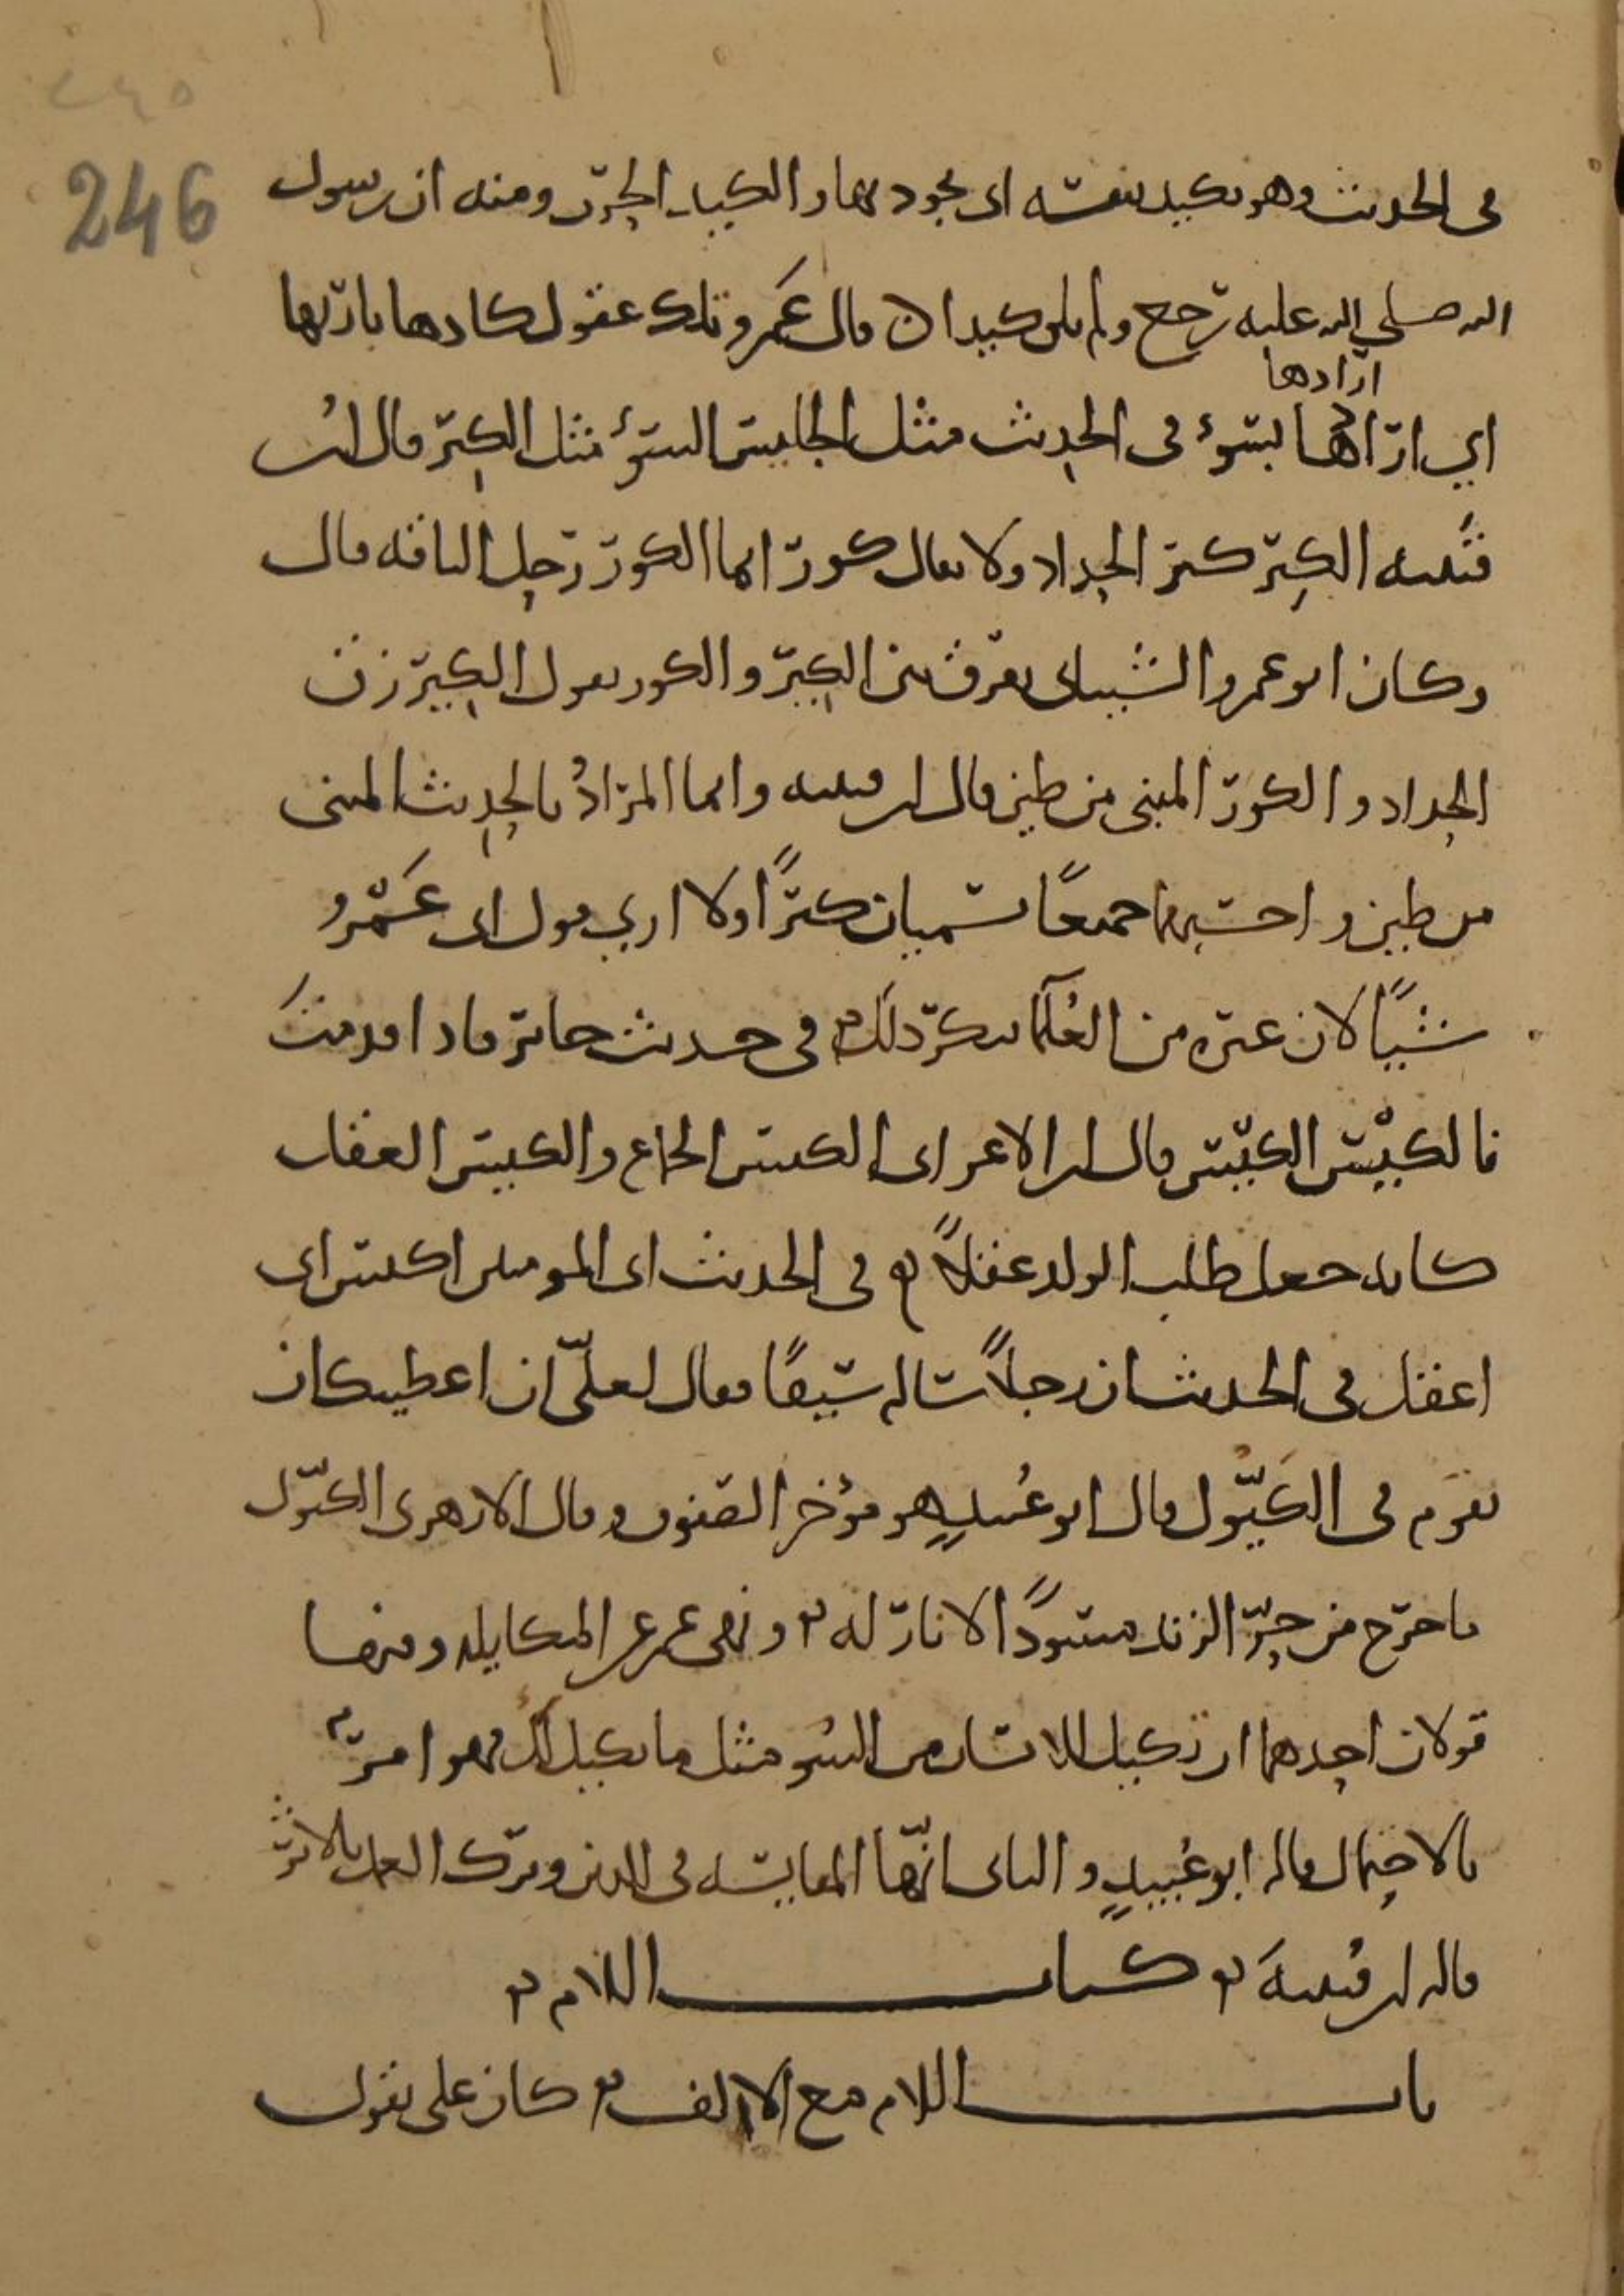 ٢٤٥
246
في الحديث وهو يكيد بنفسه اي يجود بها والكيد الحرب ومنه ان رسول
الله صلى الله عليه رجع ولم يلق كيدا ن قال عمرو تلك عقول كادها بارئها
ارادها
اي ارادها بسوء في الحديث مثل الجليس السوء مثل الكير قال ابن
قتيبه الكير كير الحداد ولا يقال كور انما الكور رحل الناقه قال
وكان ابو عمرو الشيباني يفرق بين الكير والكور يقول الكير زق
الحداد والكور المبني من طين قال ابن قتيبه وانما المراد بالحديث المبني
من طين واحسبهما جميعًا يسميان كيرًا ولا اري قول ابي عَمْرو
شيئًا لان غيره من العلماء ينكر ذلك في حديث جابر فاذا قدمت
فالكَيْسَ الكَيْسَ قال ابن الاعرابي الكيس الجماع والكيس العقل
كانه جعل طلب الولد عقلاً في الحديث اي المومنين اكيس اي
اعقل في الحديث ان رجلاً ساله سيفًا فقال لعلّي ان اعطيتكه ان
تقوم في الكَيُّول قال ابو عُبيد هو مؤخر الصفوف وقال الازهري الكيّول
ما خرج من حرّ الزند مسودًا لا نار له ونهى عمر عن المكايله وفيها
قولان احدهما ان تكيل للانسان من السُوء مثل ما يكيل لك فهو امرٌ
بالاحتمال قاله ابو عُبيد والثاني انّها المقايسه في الدين وترك العمل بالاثر
قاله ابن قتيبة كتاب اللام
باب اللام مع الالف كان على يقول